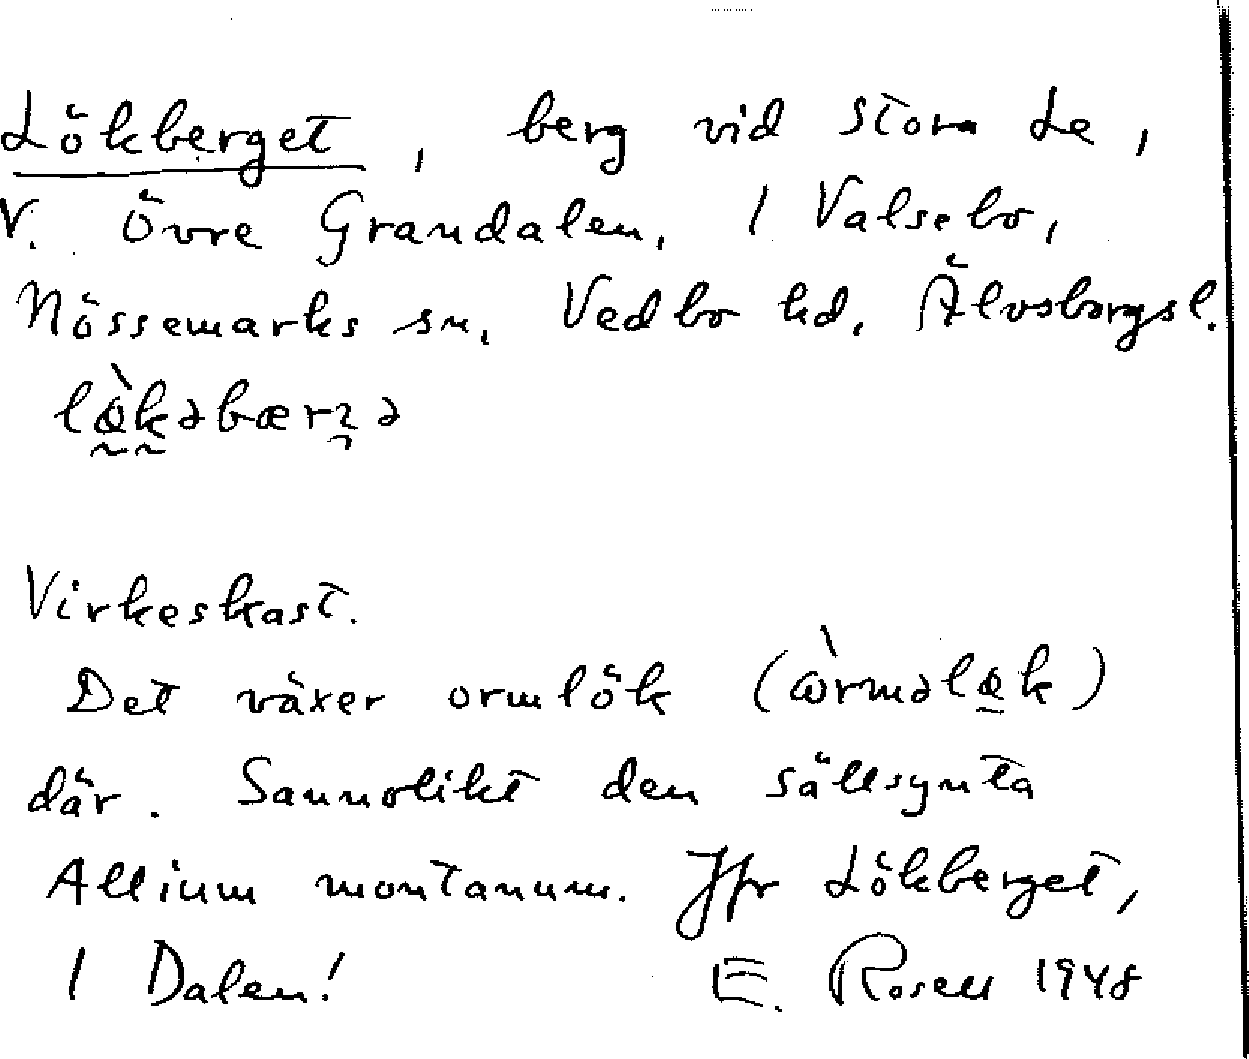 Lökberget, berg vid Stora Le,
V. Övre Grandalen, 1 Valsebo,
Nössemarks sn, Vedbo hd, Älvsborgs l.
Virkeskast.
Det växer ormlök
där. Sannolikt den sällsynta
Allium montanum. Jfr Lökberget,
1 Dalen! E. Rosell 1948